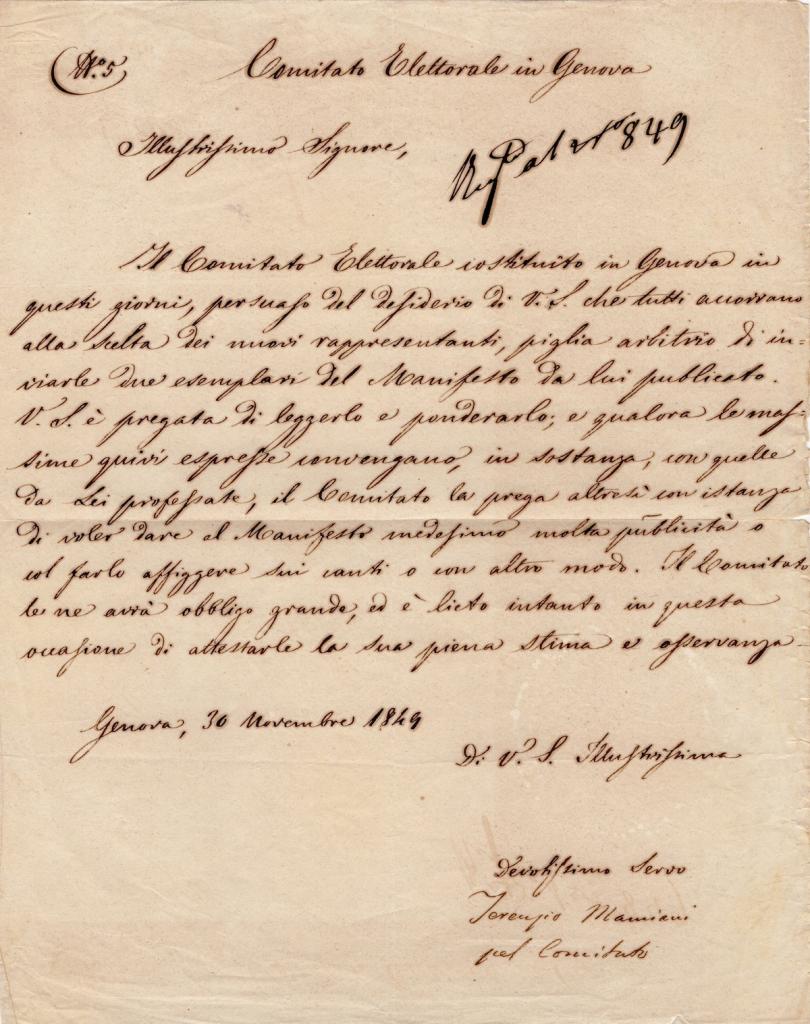 N.° 5
Comitato Elettorale in Genova
Illustrissimo Signore,
849
Il Comitato Elettorale costituito in Genova in
questi giorni, persuaso del desiderio di V. S. che tutti accorrano
alla scelta dei nuovi rappresentanti, piglia arbitrio di in-
viarle due esemplari del Manifesto da lui publicato.
V. S. è pregata di leggerlo e ponderarlo; e qualora le mas-
sime quivi espresse convengano, in sostanza, con quelle
da Lei professate, il Comitato la prega altresì con istanza
di voler dare al Manifesto medesimo molta publicità o
col farlo affiggere sui canti o con altro modo. Il Comitato
le ne avrà obbligo grande, ed è lieto intanto in questa
occasione di attestarle la sua piena stima e osservanza
Genova, 30 Novembre 1849
Di V. S. Illustrissima
Devotissimo Servo
Terenzio Mamiani
pel Comitato